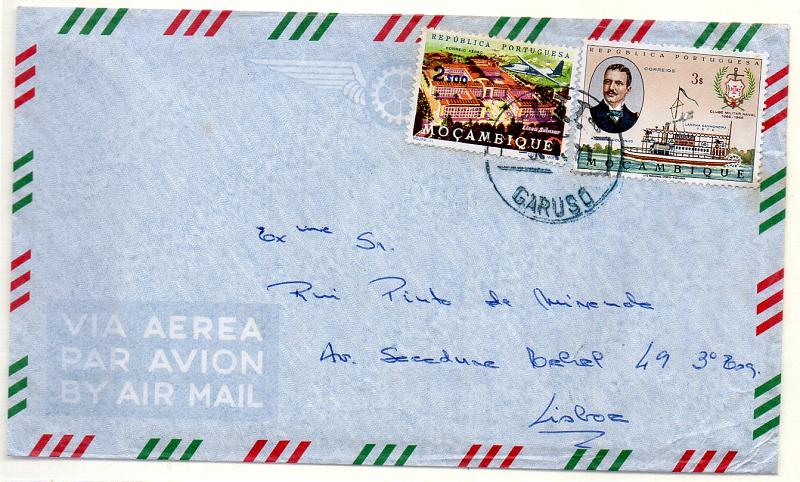 REPÚBLICA PORTUGUESA
CORREIO AÉREO
2$00
Liceu Salazar
MOÇAMBIQUE
REPÚBLICA PORTUGUESA
CORREIOS
3$
CLUBE MILITAR NAVAL
1866-1966
MOÇAMBIQUE
GARUSO
Exme Sr.
Rui Pinto de Miranda
Av. Sacadura Cabral 49 3º Esq.
Lisboa
VIA AEREA
PAR AVION
BY AIR MAIL